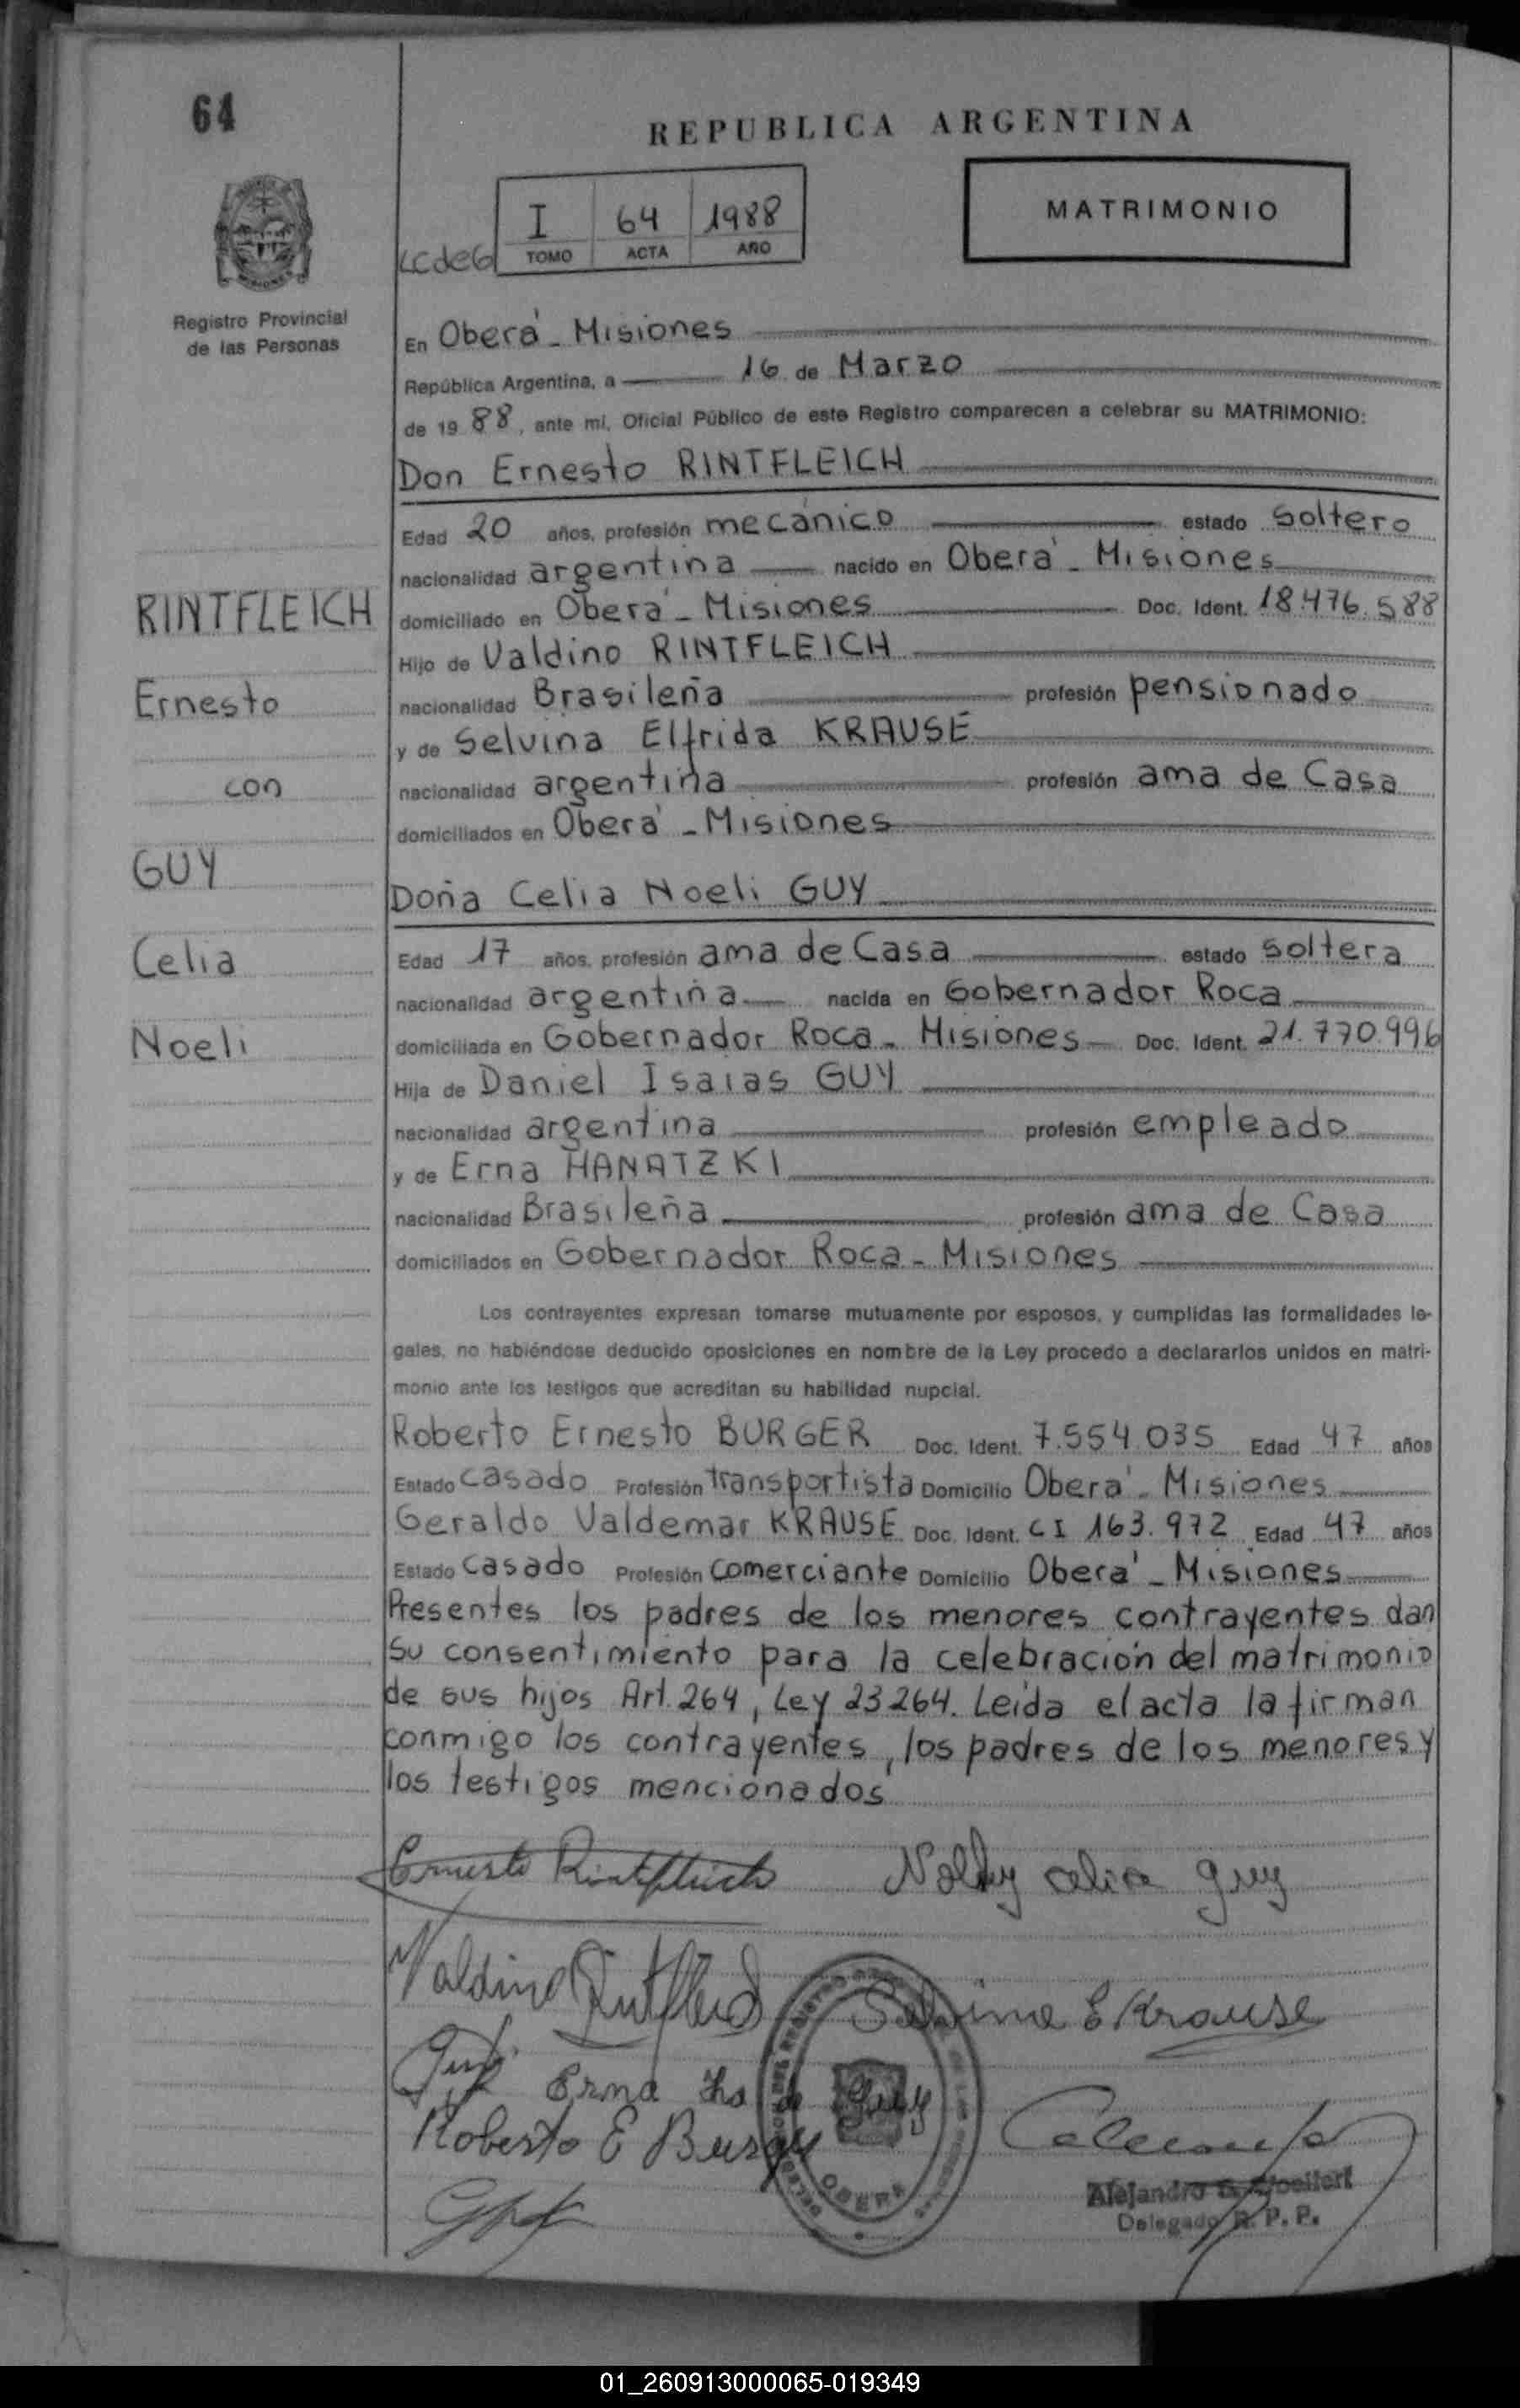 64
REPUBLICA ARGENTINA
I 64 1988
TOMO ACTA AÑO
MATRIMONIO
Registro Provincial
de las Personas
En Oberá - Misiones
República Argentina, a 16 de Marzo
de 1988, ante mí, Oficial Público de este Registro comparecen a celebrar su MATRIMONIO:
Don Ernesto RINTFLEICH
Edad 20 años, profesión mecánico estado Soltero
nacionalidad argentina nacido en Oberá - Misiones
domiciliado en Oberá - Misiones Doc. Ident. 18.476.588
Hijo de Valdino RINTFLEICH
nacionalidad Brasileña profesión pensionado
y de Selvina Elfrida KRAUSE
nacionalidad argentina profesión ama de Casa
domiciliados en Oberá - Misiones
RINTFLEICH
Ernesto
con
GUY
Celia
Noeli
Doña Celia Noeli GUY
Edad 17 años, profesión ama de Casa estado Soltera
nacionalidad argentina nacida en Gobernador Roca
domiciliada en Gobernador Roca - Misiones Doc. Ident. 21.770.996
Hija de Daniel Isaias GUY
nacionalidad argentina profesión empleado
y de Erna HANATZKI
nacionalidad Brasileña profesión ama de Casa
domiciliados en Gobernador Roca - Misiones
Los contrayentes expresan tomarse mutuamente por esposos, y cumplidas las formalidades le-
gales, no habiéndose deducido oposiciones en nombre de la Ley procedo a declararlos unidos en matri-
monio ante los testigos que acreditan su habilidad nupcial.
Roberto Ernesto BURGER Doc. Ident. 7.554.035 Edad 47 años
Estado Casado Profesión transportista Domicilio Oberá - Misiones
Geraldo Valdemar KRAUSE Doc. Ident. CI 163.972 Edad 47 años
Estado Casado Profesión comerciante Domicilio Oberá - Misiones
Presentes los padres de los menores contrayentes dan
su consentimiento para la celebración del matrimonio
de sus hijos Art. 264, Ley 23264. Leída el acta la firman
conmigo los contrayentes, los padres de los menores y
los testigos mencionados
Ernesto Rintfleich
celia guy
Valdino
Selvina E Krause
Erna de Guy
Roberto E Burger
OBERA
Alejandro
Delegado R. P. P.
01_260913000065-019349